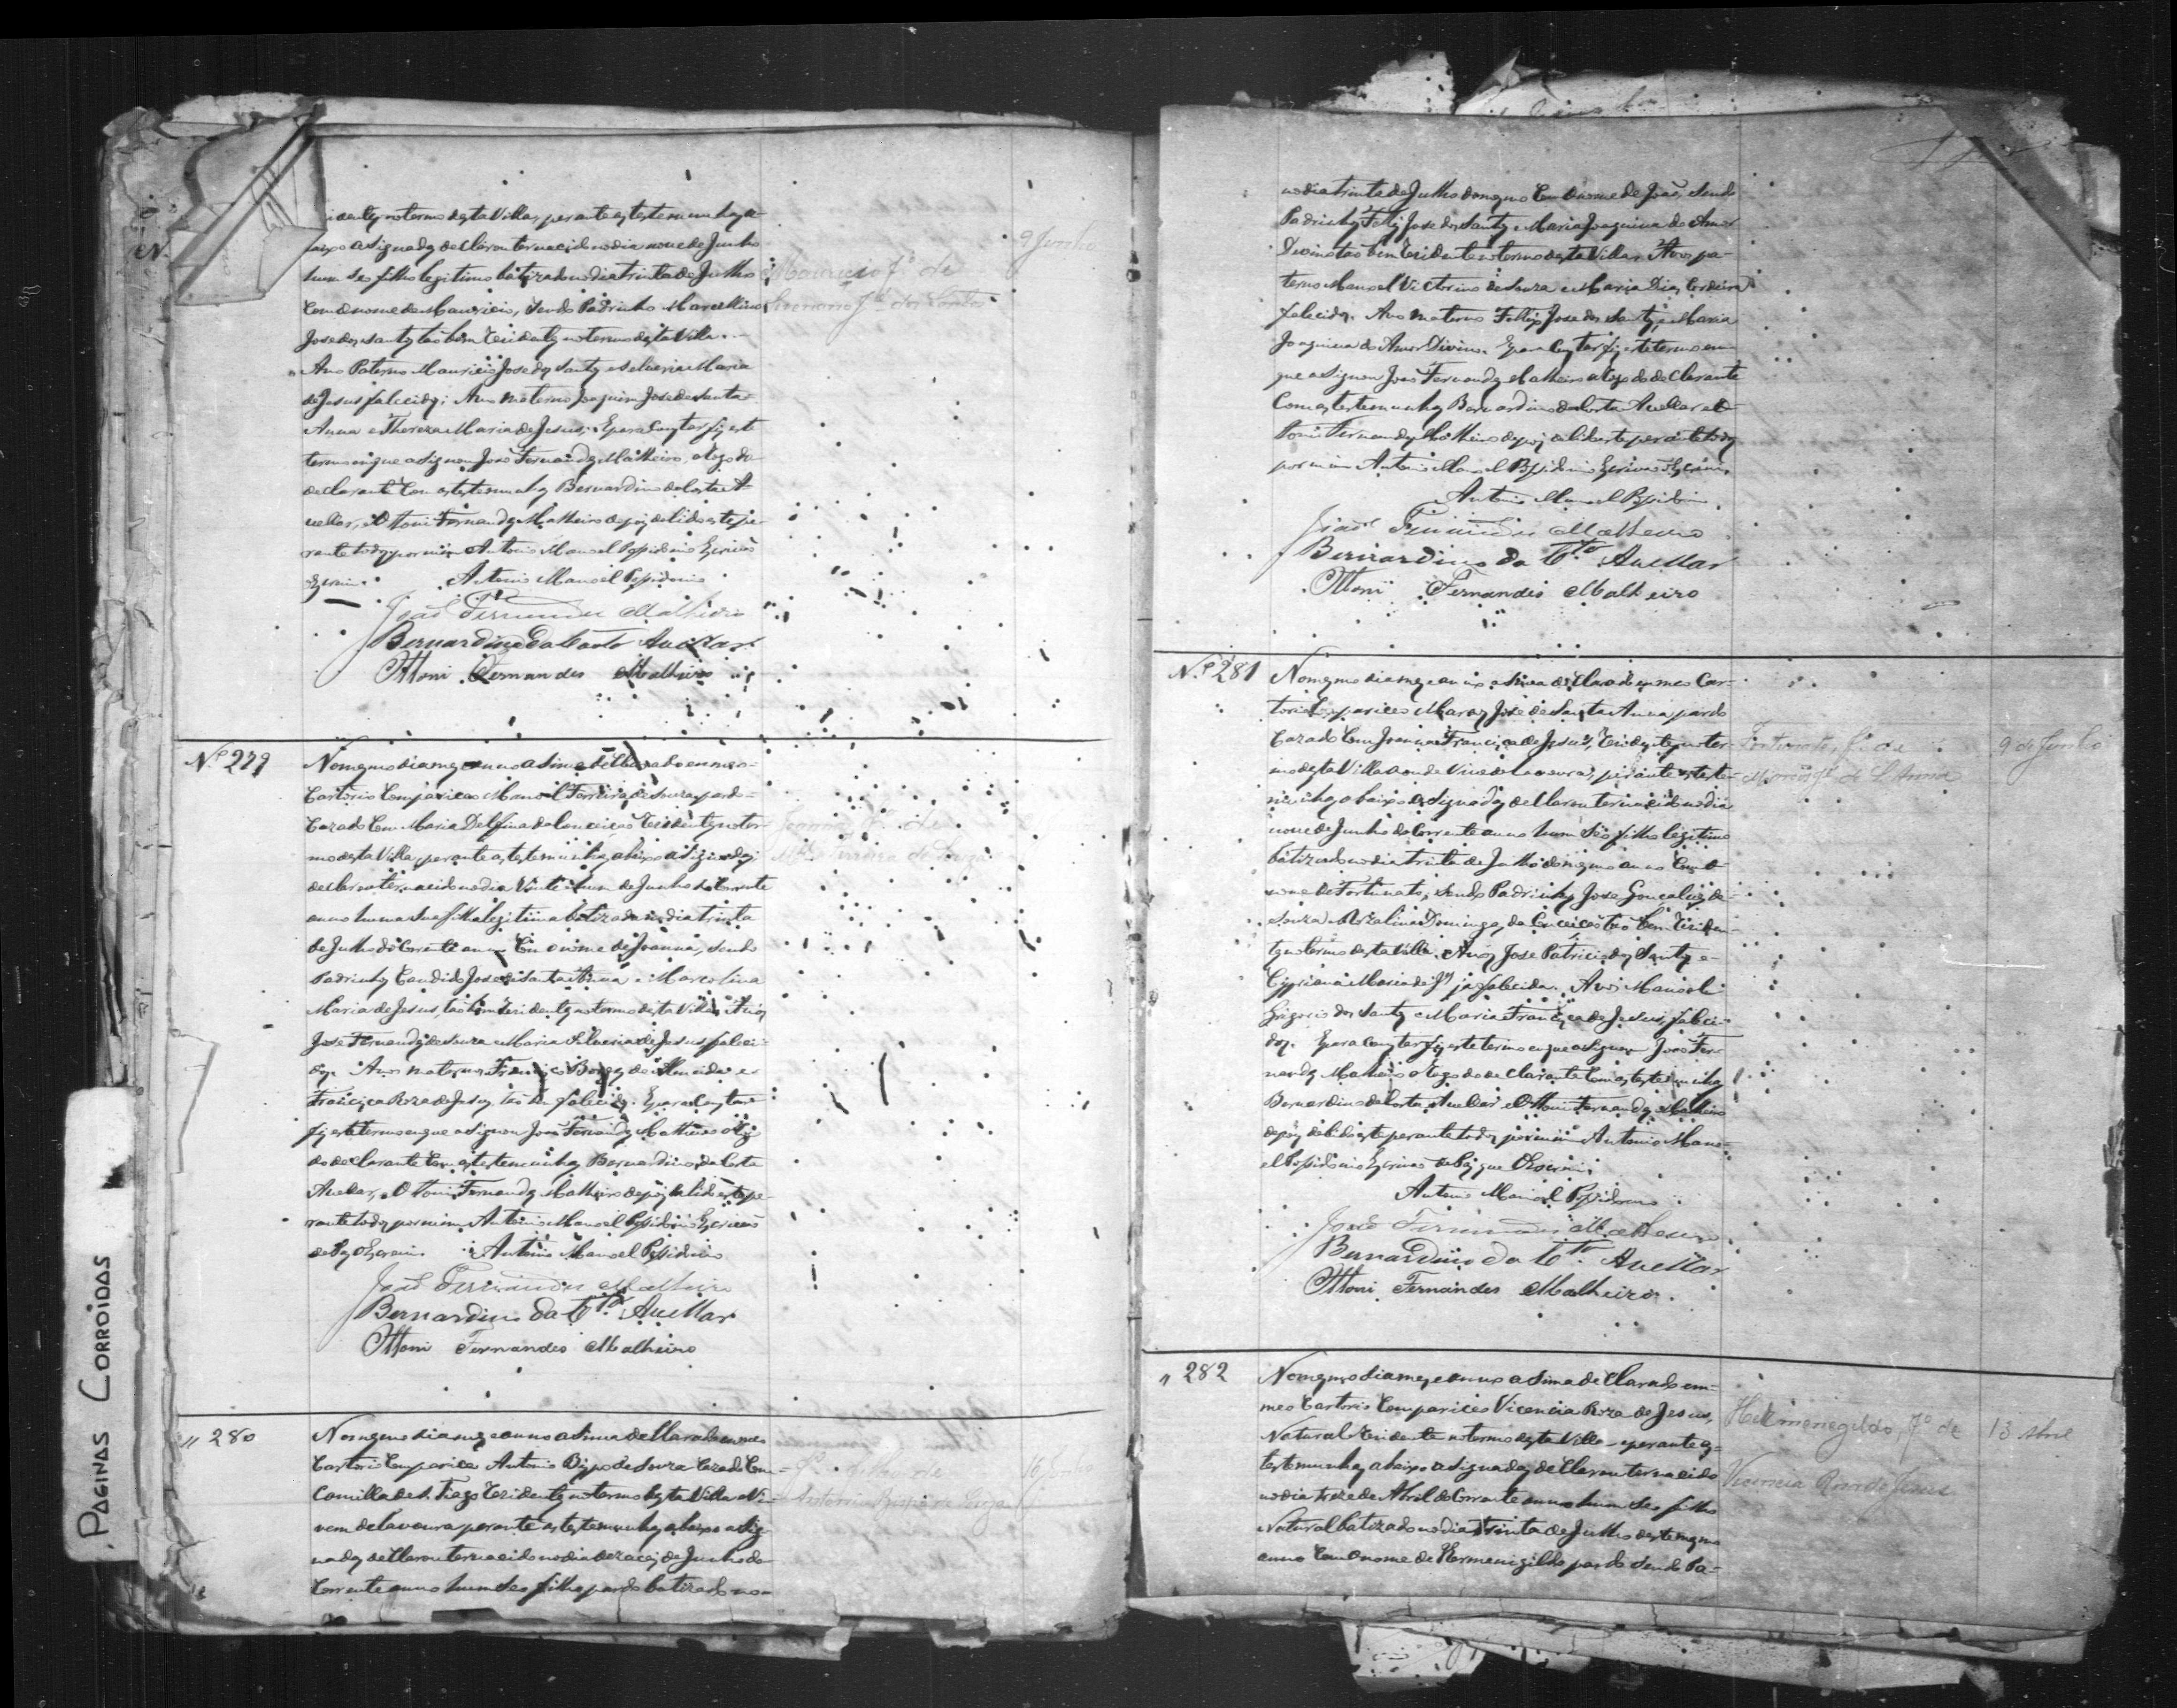 identes no termo desta Villa, perante as testemunhas a-
baixo asignadas declarou ter nacido no dia nove de Junho
hum seo filho legitimo batizado no dia trinta de Julho
Com o nome de Mauricio, sendo Padrinho Marcellino
Jose dos Santos tão bem rezidentes no termo desta Villa.
Avo Paterno Mauricio Jose dos Santos e Silveria Maria
de Jesus falecidos; Avo Materno Joaquim Jose de Santa
Anna e Thereza Maria de Jesus. E para Constar fiz este
termo em que asignou João Fernandes Malheiro, a rogo do
declarante Com as testemunhas Bernardino da Costa A-
vellar, e Ottoni Fernandes Malheiro depois de lido este pe-
rante todos por mim Antonio Manoel Possidonio Escrivão
Escrevi. Antonio Manoel Possidonio
João Fernandes Malheiro
Bernardino da Costa Avellar
Ottoni Fernandes Malheiro
N.
Mauricio fº de
Jose dos Santos
9 Junho
Nº 279
No mesmo dia mez e anno asima declarado em meo
Cartorio Compareceo Manoel Ferreira de Souza pardo
Cazado Com Maria Delfina da Conceição rezidentes no ter-
mo desta Villa, perante as testemunhas abaixo asignadas
declarou ter nacido no dia Vinte e hum de Junho do Corrente
anno huma sua filha legitima batizada no dia trinta
de Julho do Corrente anno Com o nome de Joanna, sendo
Padrinhos Candido Jose de Santa Anna e Marcolina
Maria de Jesus, tão bem rezidentes no termo desta Villa. Avos
Jose Fernandes de Souza e Maria Silveria de Jesus faleci-
dos. Avos maternos Francisco Borges de Almeida e
Francisca Roza de Jesus tão bem falecidos. E para Constar
fiz este termo em que asignou João Fernandes Malheiro a rogo
do declarante Com as testemunhas Bernardino da Costa
Avellar, e Ottoni Fernandes Malheiro depois de lido este pe-
rante todos por mim Antonio Manoel Possidonio Escrivão
de Paz Escrevi. Antonio Manoel Possidonio
João Fernandes Malheiro
Bernardino da Cta Avellar
Ottoni Fernandes Malheiro
Joanna fª de
Mel Ferreira de Souza
" 280
No mesmo dia mez e anno asima declarado em meo
Cartorio Compareceo Antonio Bispo de Souza Cazado Com
Camilla de S. Tiago rezidentes no termo desta Villa e Vi-
vem de lavoura perante as testemunhas abaixo asig-
nadas declarou ter nacido no dia dezaceis de Junho do
Corrente anno hum seo filho pardo batizado no
filho de
Antonio Bispo de Souza
16 Junho
no dia trinta de Julho do mesmo Com o nome de João, sendo
Padrinhos Felis Jose dos Santos e Maria Joaquina do Amor
Divino tão bem rezidente no termo desta Villa. Avo pa-
terno Manoel Victorino de Souza e Maria Dias Cordeira
falecidos. Avo materno Felis Jose dos Santos, e Maria
Joaquina do Amor Divino. E para Constar fiz este termo em
que asignou João Fernandes Malheiro a rogo do declarante
Com as testemunhas Bernardino da Costa Avellar e Ot-
toni Fernandes Malheiro depois de lido este perante todos
por mim Antonio Manoel Possidonio Escrivão Escrevi.
Antonio Manoel Possidonio
João Fernandes Malheiro
Bernardino da Cta Avellar
Ottoni Fernandes Malheiro
Nº 281
No mesmo dia mez e anno asima declarado em meo Car-
torio Compareceo Jose de Santa Anna pardo
Cazado Com Joanna Francisca de Jesus, rezidentes no ter-
mo desta Villa aonde Vive de lavoura, perante as teste-
munhas abaixo asignadas declarou ter nacido no dia
nove de Junho do Corrente anno hum seo filho legitimo
batizado no dia trinta de Julho do mesmo anno Com o
nome de Fortunato, sendo Padrinhos Jose Gonçalves de
Souza e Rozalina Dominga da Conceição tão bem reziden-
tes no termo desta Villa. Avos Jose Patricio dos Santos e
Cypriana Maria de Js já falecida. Avos Manoel
Gregorio dos Santos e Maria Francisca de Jesus, faleci-
dos. E para Constar fiz este termo em que asignou João Fer-
nandes Malheiro a rogo do declarante Com as testemunhas
Bernardino da Costa Avellar e Ottoni Fernandes Malheiro
depois de lido este perante todos por mim Antonio Mano-
el Possidonio Escrivão de Paz que Escrevi.
Antonio Manoel Possidonio
João Fernandes Malheiro
Bernardino da Cta Avellar
Ottoni Fernandes Malheiro.
Fortunato, fº de
Jé de S Anna
9 de Junho
" 282
No mesmo dia mez e anno asima declarado em
meo Cartorio Compareceo Vicencia Roza de Jesus,
Natural rezidente no termo desta Villa e perante as
testemunhas abaixo asignadas declarou ter nacido
no dia treze de Abril do Corrente anno hum seo filho
Natural batizado no dia trinta de Julho deste mesmo
anno Com o nome de Hermenigildo pardo sendo Pa-
Hermenegildo, fº de
Vicencia Roza de Jesus
13 Abril
PAGINAS CORROIDAS